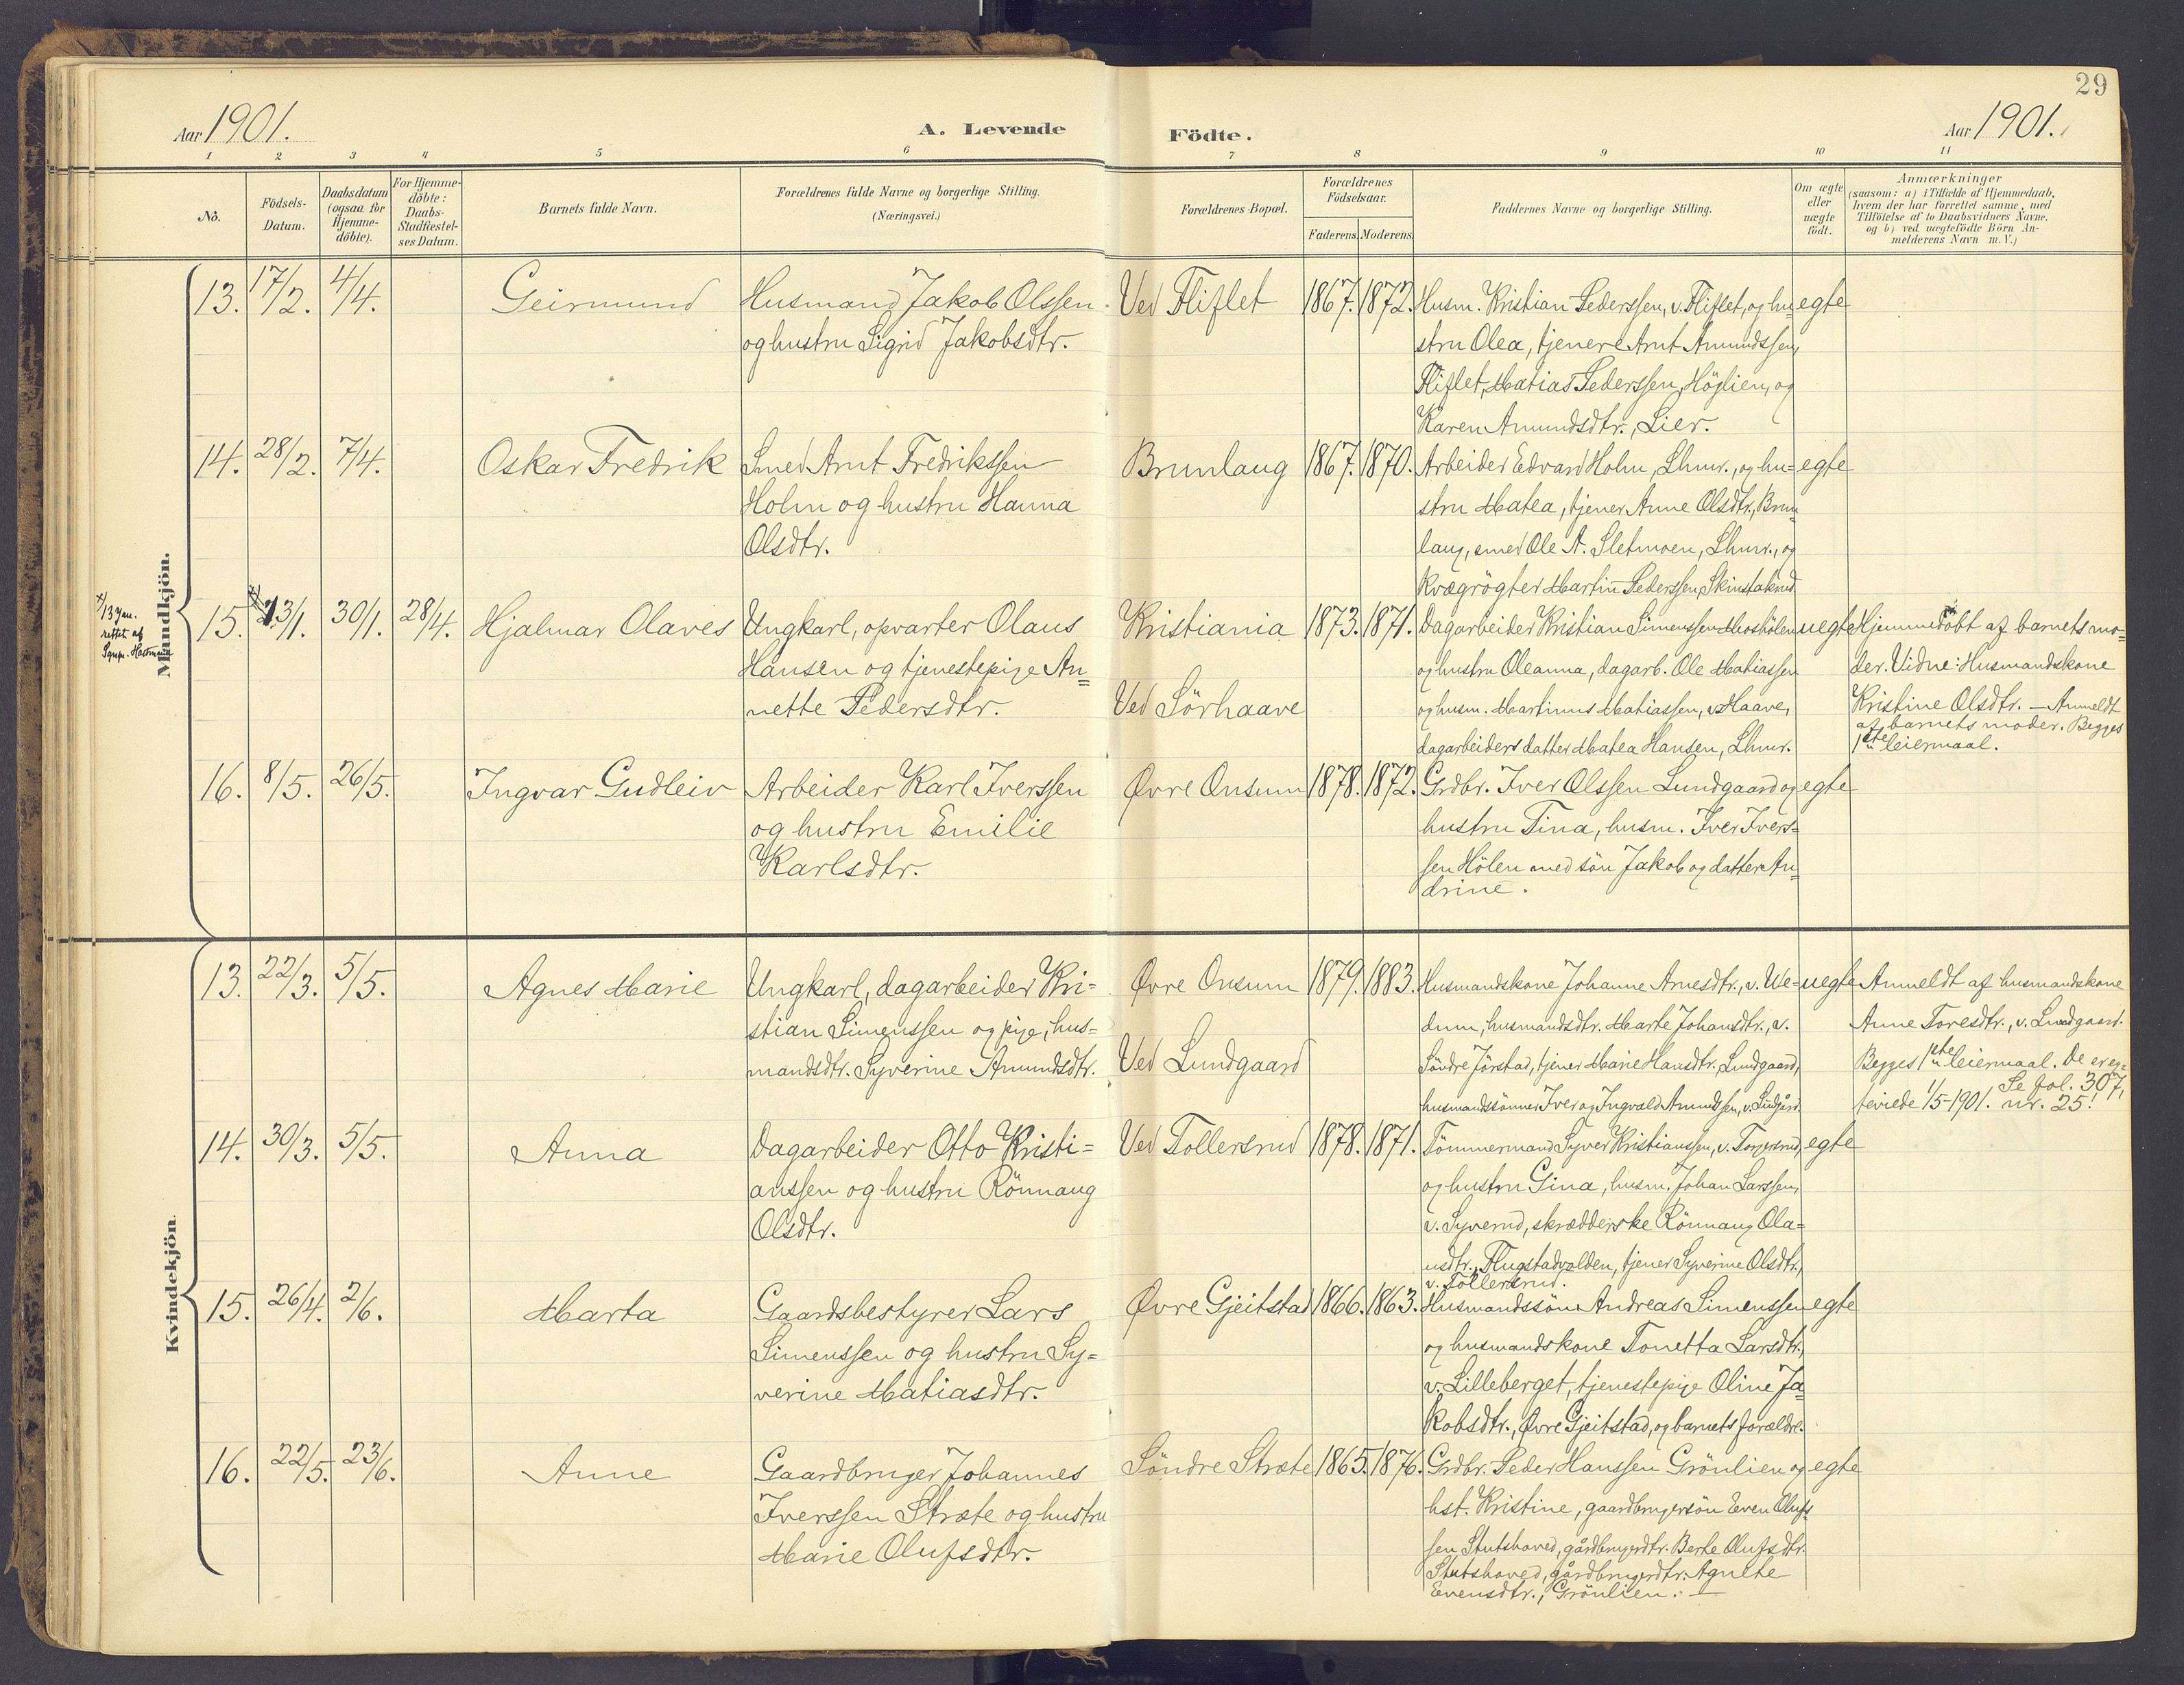 29
Aar 1901.
A. Levende
Födte.
Aar 1901.
1 2 3 4 5 6 7 8 9 10 11
No.
Födsels-
Datum.
Daabsdatum
(ogsaa for
Hjemme-
döbte).
For Hjemme-
döbte:
Daabs-
Stadfæstel-
ses Datum.
Barnets fulde Navn.
Forældrenes fulde Navne og borgerlige Stilling.
(Næringsvei.)
Forældrenes Bopæl.
Forældrenes
Födselsaar.
Faderens. Moderens.
Faddernes Navne og borgerlige Stilling.
Om ægte
eller
uægte
födt.
Anmærkninger
(saasom: a) i Tilfælde af Hjemmedaab,
hvem der har forrettet samme, med
Tilföielse af to Daabsvidners Navne.
og b) ved uægtefödte Börn An-
melderens Navn m. V.)
Mandkjön.
13. 17/2. 4/4. Geirmund
Husmand Jakob Olssen
og hustru Sigrid Jakobsdtr.
Ved Fliflet 1867. 1872.
Husm. Kristian Pederssen, v. Fliflet, og hu=
stru Olea, tjenere Arnt Amundssen,
Fliflet, Matias Pederssen, Höglien, og
Karen Amundsdtr., Lier.
egte
14. 28/2. 7/4. Oskar Fredrik
Smed Arnt Fredrikssen
Holm og hustru Hanna
Olsdtr.
Brunlaug 1867. 1870.
Arbeider Edvard Holm, Lhmr., og hu=
stru Matea, tjener Anne Olsdtr., Brun
laug, smed Ole A. Sletmoen, Lhmr., og
kvægrögter Martin Pederssen, Skinstakrud
egte
x/ 13 Jan.
rettet af
15. x/ 13/1. 30/1. 28/4. Hjalmar Olaves
Ungkarl, opvarter Olaus
Hansen og tjenestepige An=
nette Pedersdtr.
Kristiania
Ved Sörhaave
1873. 1871.
Dagarbeider Kristian Simenssen Moshölen
og hustru Oleanna, dagarb. Ole Matiassen
og husm. Martinus Matiassen, v. Haave,
dagarbeiders datter Matea Hansen, Lhmr.
uegte
Hjemmedöbt af barnets mo=
der. Vidne: Husmandskone
Kristine Olsdtr. — Anmeldt
af barnets moder. Begges
1ste leiermaal.
16. 8/5. 26/5. Ingvar Gudleiv
Arbeider Karl Iverssen
og hustru Emilie
Karlsdtr.
Øvre Onsum 1878. 1872.
Grdbr. Iver Olssen Lundgaard og
hustru Tina, husm. Iver Ivers=
sen Hölen med sön Jakob og datter An=
drine.
egte
Kvindekjön.
13. 22/3. 5/5. Agnes Marie
Ungkarl, dagarbeider Kri=
stian Simenssen og pige, hus=
mandsdtr. Syverine Amundsdtr.
Øvre Onsum
Ved Lundgaard
1879. 1883.
Husmandskone Johanne Arnesdtr., v. We=
dum, husmandsdtr. Marte Johansdtr., v.
Söndre Jörstad, tjener Marie Hansdtr. Lundgaard,
husmandssönner Iver og Ingvald Amundssen, v. Lundgård.
uegte
Anmeldt af husmandskone
Anne Toresdtr., v. Lundgaard.
Begges 1ste leiermaal. De er eg=
teviede 1/5-1901. Se fol. 307,
nr. 25!
14. 30/3. 5/5. Anna
Dagarbeider Otto Kristi=
anssen og hustru Rönnaug
Olsdtr.
Ved Tollersrud 1878. 1871.
Tömmermand Syver Kristianssen, v. Torgersrud,
og hustru Gina, husm. Johan Larssen,
v. Syverud, skrædderske Rönnaug Ola=
usdtr., Flugstadvolden, tjener Syverine Olsdtr.,
v. Tollersrud.
egte
15. 26/4. 2/6. Marta
Gaardsbestyrer Lars
Simenssen og hustru Sy=
verine Matiasdtr.
Øvre Gjeitstad 1866. 1863.
Husmandssön Andreas Simenssen
og husmandskone Tonetta Larsdtr.,
v. Lilleberget, tjenestepige Oline Ja=
kobsdtr., Øvre Gjeitstad, og barnets forældre.
egte
16. 22/5. 23/6. Anne
Gaardbruger Johannes
Iverssen Stræte og hustru
Marie Olufsdtr.
Söndre Stræte 1865. 1876.
Grdbr. Peder Hanssen Grönlien og
hst. Kristine, gaardbrugersön Even Olufs
sen Stutshoved, gårdbrugerdtr. Berte Olufsdtr.
Stutshoved, gårdbrugerdtr. Agnethe
Evensdtr., Grönlien. —
egte